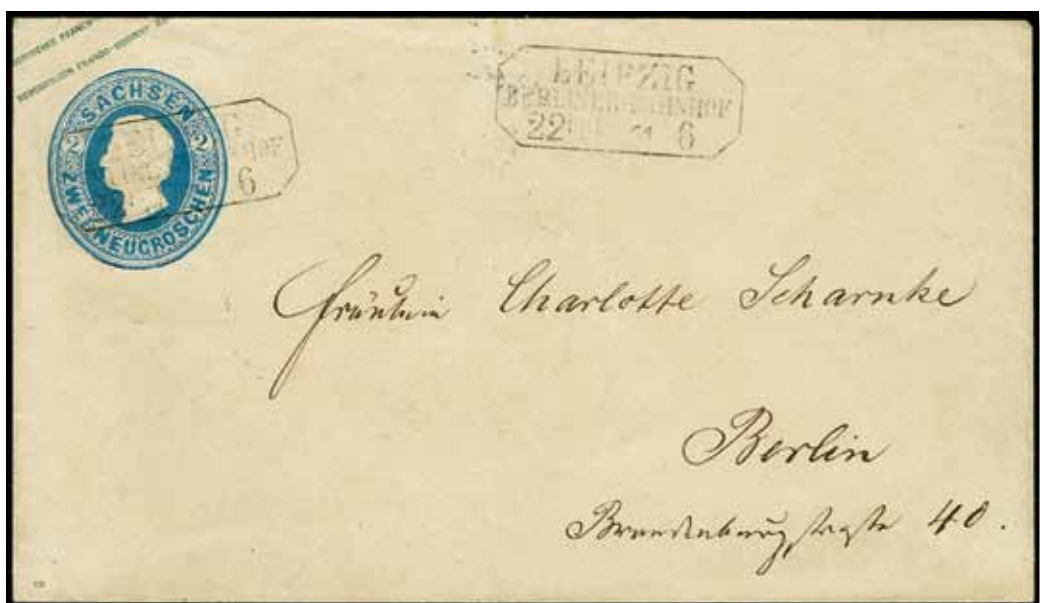 SACHSEN
2 2
ZWEI NEUGROSCHEN
LEIPZIG
BERLINER BAHNHOF
22 6
HOF
6
Fräulein Charlotte Scharnke
Berlin
Brandenburgstraße 40.